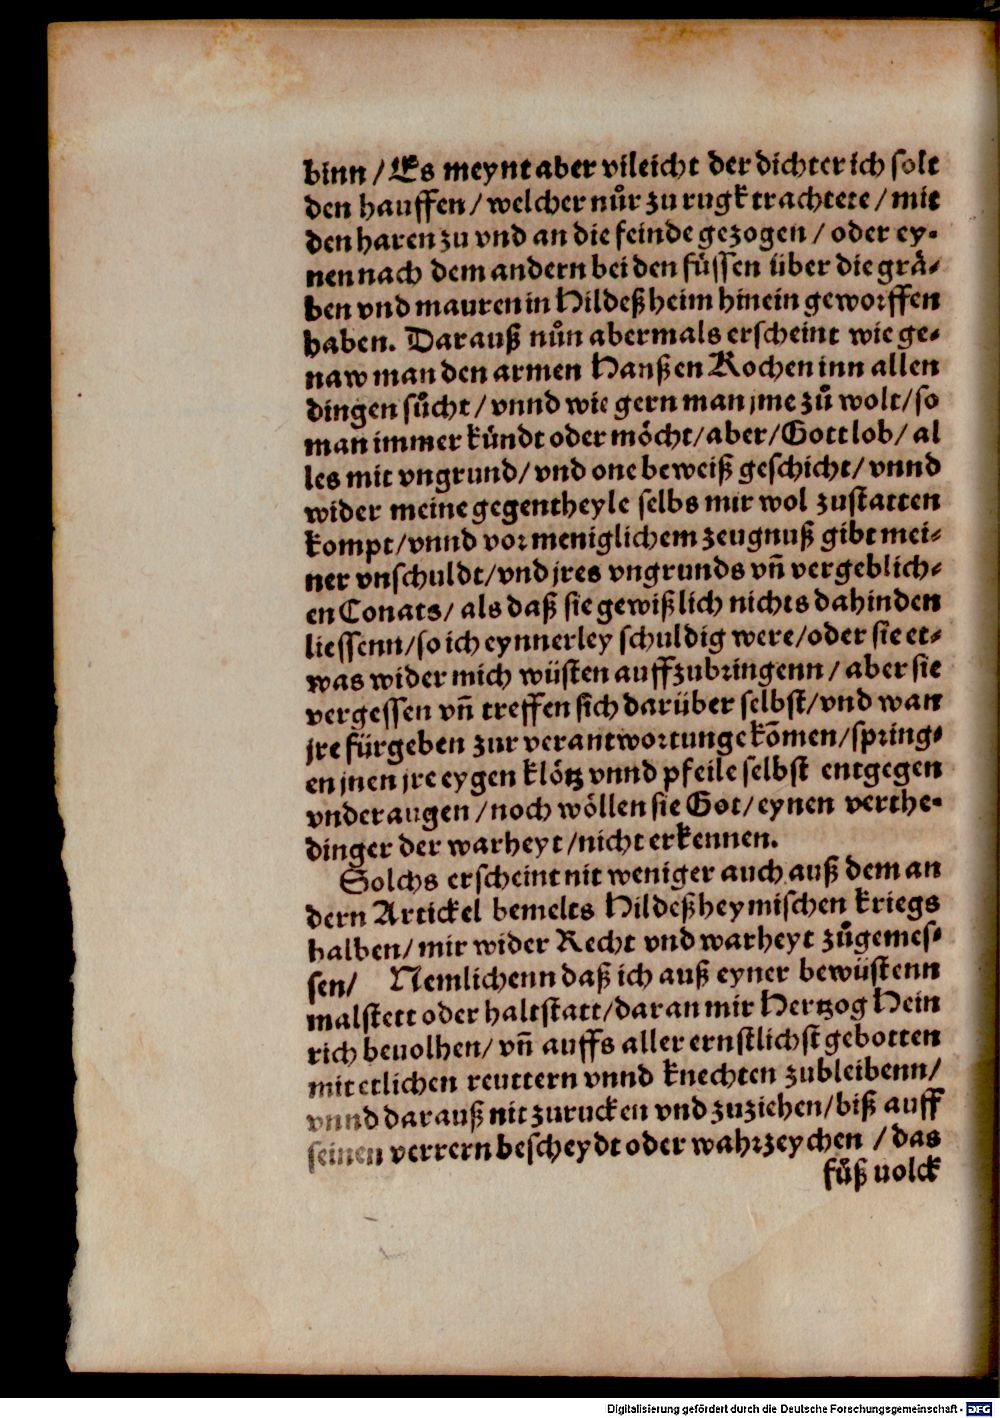 binn / Es meynt aber vileicht der dichter ich solt
den hauffen / welcher nůr zu rugk trachtete / mit
den haren zu vnd an die feinde gezogen / oder ey-
nen nach dem andern bei den fůssen über die grå-
ben vnd mauren in Hildeßheim hinein geworffen
haben. Darauß nůn abermals erscheint wie ge-
naw man den armen Hanßen Kochen inn allen
dingen sůcht / vnnd wie gern man jme zů wolt / so
man immer kündt oder möcht / aber / Gott lob / al
les mit vngrund / vnd one beweiß geschicht / vnnd
wider meine gegentheyle selbs mir wol zustatten
kompt / vnnd vor meniglichem zeugnuß gibt mei-
ner vnschuldt / vnd jres vngrunds vñ vergeblich-
en Conats / als daß sie gewißlich nichts dahinden
liessenn / so ich eynnerley schuldig were / oder sie et-
was wider mich wüsten auffzubringenn / aber sie
vergessen vñ treffen sich darüber selbst / vnd wan
jre fürgeben zur verantwortunge kōmen / spring-
en jnen jre eygen klötz vnnd pfeile selbst entgegen
vnder augen / noch wöllen sie Got / eynen verthe-
dinger der warheyt / nicht erkennen.
Solchs erscheint nit weniger auch auß dem an
dern Artickel bemelts Hildeßheymischen kriegs
halben / mir wider Recht vnd warheyt zůgemes-
sen / Nemlichenn daß ich auß eyner bewüstenn
malstett oder haltstatt / daran mir Hertzog Hein
rich beuolhen / vñ auffs aller ernstlichst gebotten
mit etlichen reuttern vnnd knechten zubleibenn /
vnnd darauß nit zurucken vnd zuziehen / biß auff
seinen verrern bescheydt oder wahrzeychen / das
fůß uolck
Digitalisierung gefördert durch die Deutsche Forschungsgemeinschaft - DFG